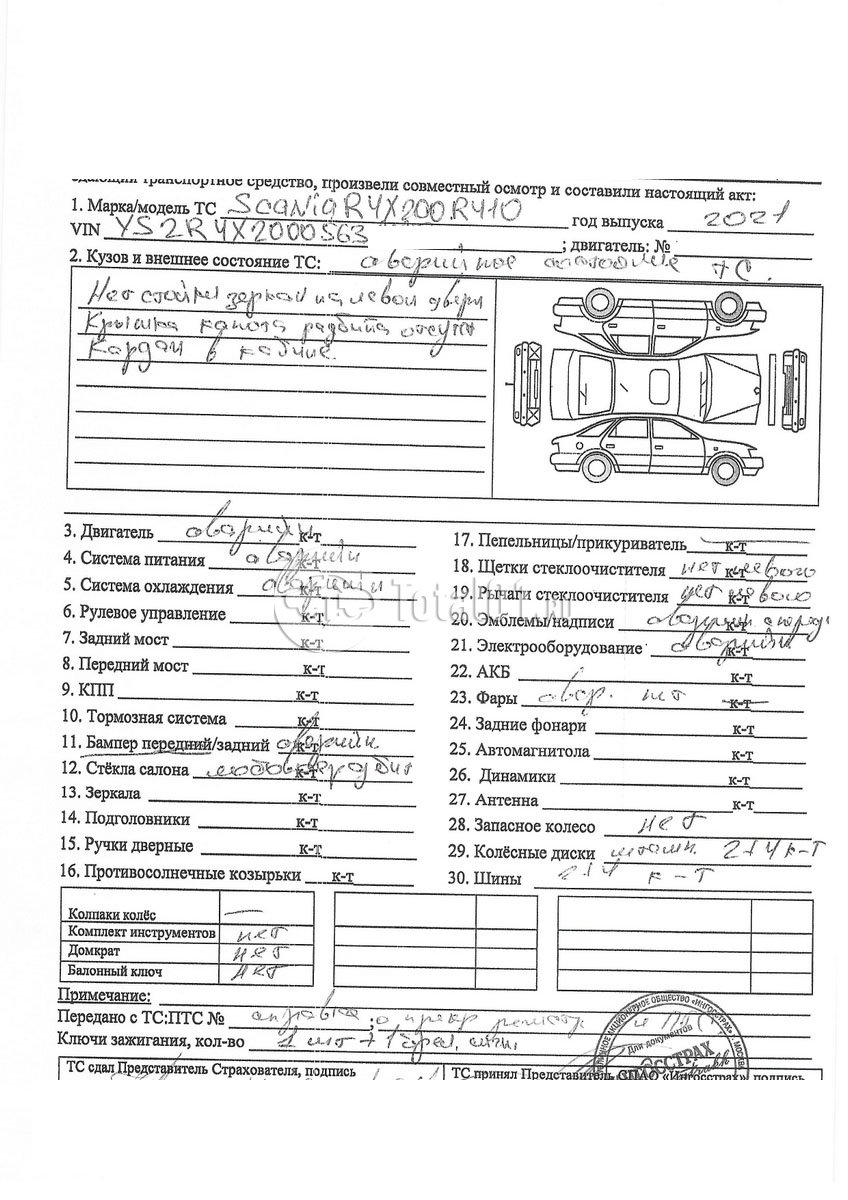 транспортное средство, произвели совместный осмотр и составили настоящий акт:
1. Марка/модель ТС Scania R4X200 R410 год выпуска 2021
VIN YS2R4X2000563 ; двигатель: №
2. Кузов и внешнее состояние ТС: аварийное ТС.
Нет стойки зеркал на левой двери
Крышка капота разбита отсут
Кардан в кабине
3. Двигатель аварийн к-т
4. Система питания аварийн к-т
5. Система охлаждения аварийн к-т
6. Рулевое управление к-т
7. Задний мост к-т
8. Передний мост к-т
9. КПП к-т
10. Тормозная система к-т
11. Бампер передний/задний аварийн к-т
12. Стёкла салона лобовое разбит к-т
13. Зеркала к-т
14. Подголовники к-т
15. Ручки дверные к-т
16. Противосолнечные козырьки к-т
17. Пепельницы/прикуриватель к-т
18. Щетки стеклоочистителя нет левого к-т
19. Рычаги стеклоочистителя нет левого к-т
20. Эмблемы/надписи аварийн спереди к-т
21. Электрооборудование аварийн к-т
22. АКБ к-т
23. Фары авар. к-т
24. Задние фонари к-т
25. Автомагнитола к-т
26. Динамики к-т
27. Антенна к-т
28. Запасное колесо нет
29. Колёсные диски штамп. 2+4 к-т
30. Шины 2+4 к-т
Колпаки колёс —
Комплект инструментов нет
Домкрат нет
Балонный ключ нет
Примечание:
Передано с ТС:ПТС № справка о прекр регистр
Ключи зажигания, кол-во 1 шт +
ТС сдал Представитель Страхователя, подпись
ТС принял Представитель СПАО «Ингосстрах», подпись
АКЦИОНЕРНОЕ ОБЩЕСТВО «ИНГОССТРАХ»
Для документов
ИНГОССТРАХ
Total01.ru